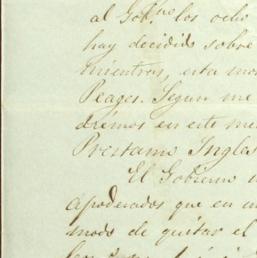 al Gob.no los ocho
hay decidido sobre
mientras, esta mo
Peages. Segun me
drémos en este me
Prestamo Ingles
El Gobierno
apoderados que en un
modo de quitar el